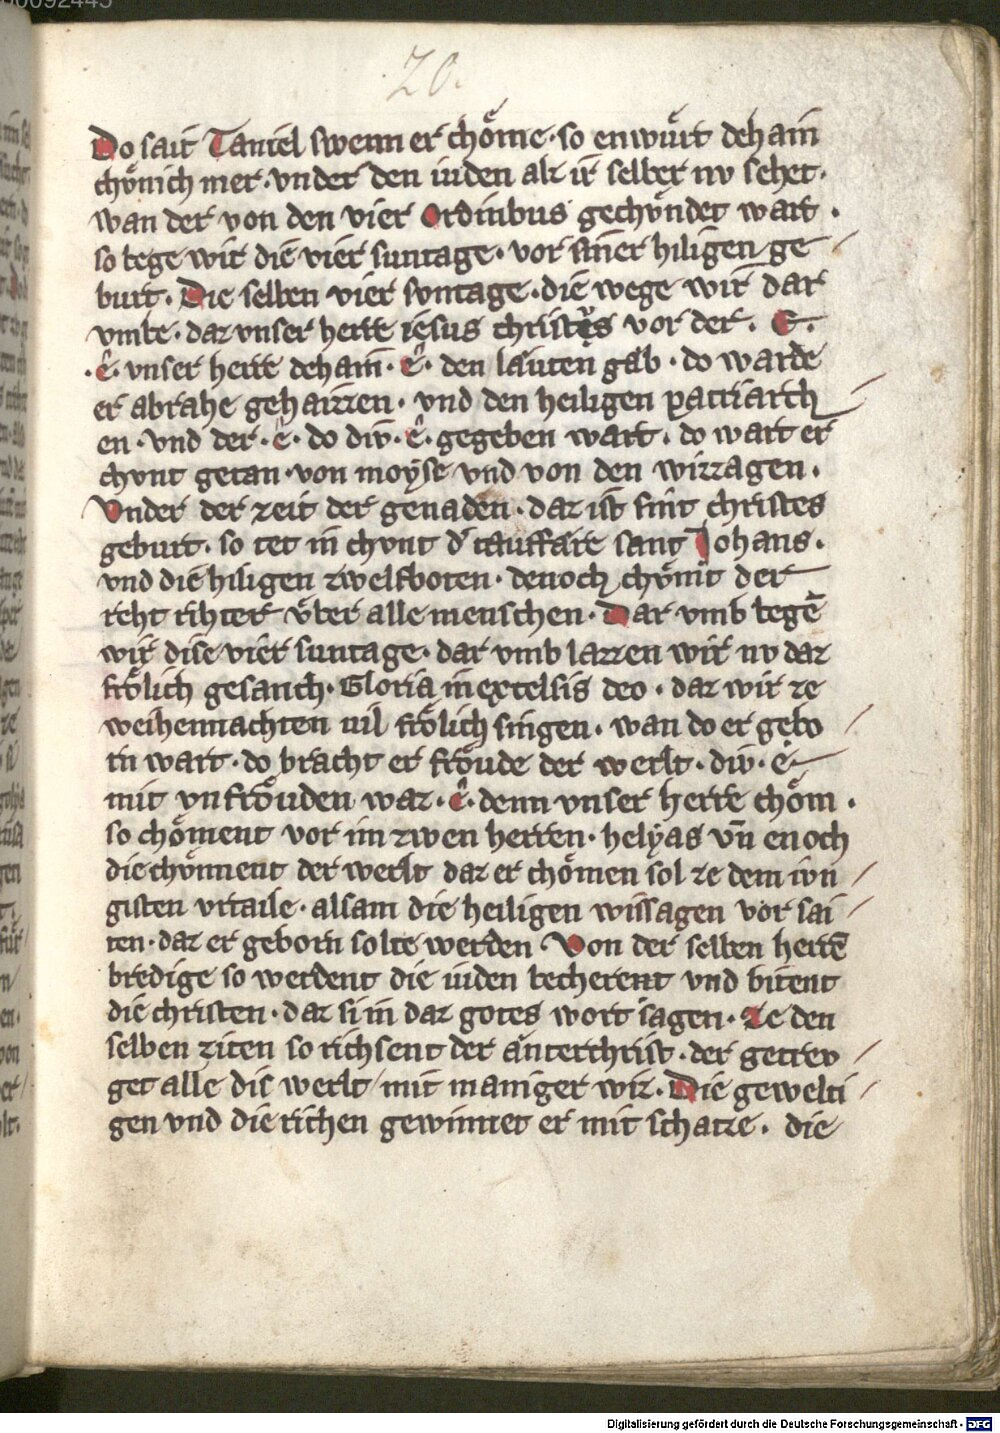 00092445
20.
Do sait Taniel swenn er chöme · so enwürt dehain
chönich mer · vnder den iuden alz ir selber nv sehet ·
wan der von den vier Ordinibus gechvndet wart ·
so bege wir die vier suntage · vor siner hiligen ge
burt · Die selben vier svntage · die wege wir dar
vmbe · daz vnser herre iesus christus vor der · E ·
· ê · vnser herre dehain · ê · den läuten gab · do warde
er abrahe gehaizzen · vnd den heiligen patriarch
en · vnd der · ê · do div · ê · gegeben wart · do wart er
chvnt getan · von moÿse vnd von den wizzagen ·
Vnder der zeit der genaden · daz ist sint christes
geburt · so tet in chvnt d͛ tauffare sant Johans ·
vnd die hiligen zwelfboten · dennoch chvmt der
reht rihter vber alle menschen · Dar vmb begē
wir dise vier suntage · dar vmb lazzen wir nv daz
frölich gesanch · Gloria in excelsis deo · daz wir ze
weihennachten vil frölich singen · wan do er gebo
rn wart · do bracht er fröude der werlt · div · e
mit vnfröuden waz · ê · denn vnser herre chöm ·
so chöment vor im zwen herren · helyas vn̄ enoch
die chvnnent der werlt daz er chömen sol ze dem ivn
gisten vrtaile · alsam die heiligen wissagen vor sai
ten · daz er geborn solte werden Von der selben herrē
bredige so werdent die iuden becherent vnd bitent
die christen · daz si in daz gotes wort sagen · Ze den
selben ziten so richsent der anterchrist · der getrev
get alle die werlt mit maniger wiz · Die gewelti
gen vnd die richen gewinnet er mit schatze · die
Digitalisierung gefördert durch die Deutsche Forschungsgemeinschaft · DFG